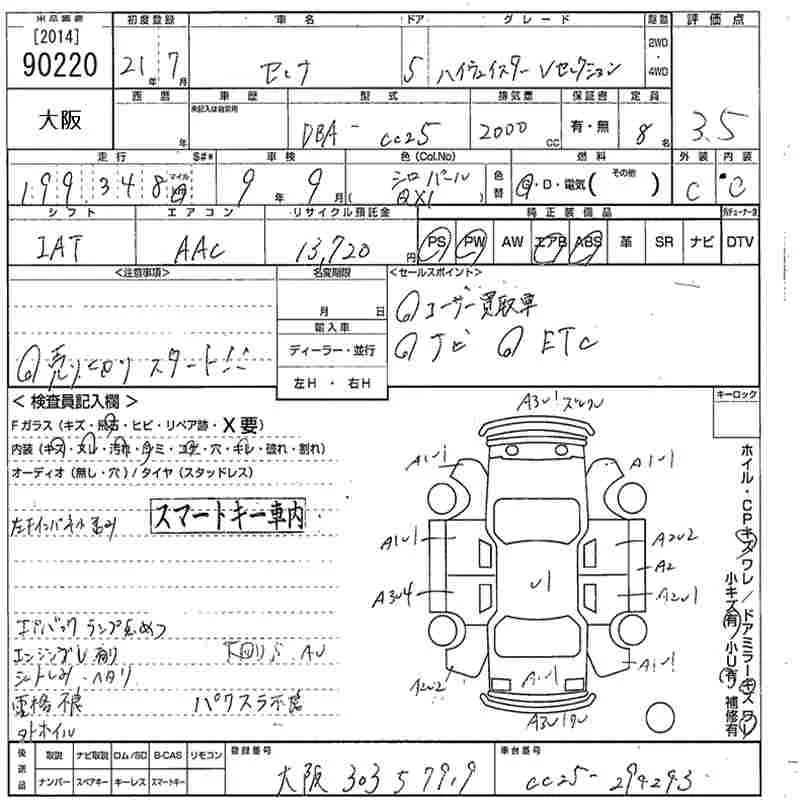 出品番号 初度登録 車名 ドア グレード 駆動 評価点
[2014]
90220 21年 7月 セレナ 5 ハイウェイスター Vセレクション 2WD・4WD 3.5
大阪 西暦 年 車歴 未記入は自家用 型式 DBA-CC25 排気量 2000cc 保証書 有・無 定員 8名
走行 S#* 車検 色(Col.No) 色替 燃料 外装 内装
199,348 マイル 9年 9月 シロパール (QX1) G・D・電気 (その他) C C
シフト エアコン リサイクル預託金 純正装備品
IAT AAC 13,720円 PS PW AW エアB ABS 革 SR ナビ DTV
<注意事項> 名変期限 <セールスポイント>
月 日 ユーザー買取車
輸入車
ディーラー・並行 ナビ ETC
売り切り スタート!!
左H・右H
<検査員記入欄> キーロック
Fガラス(キズ・飛石・ヒビ・リペア跡・X要)
内装(キズ・スレ・汚れ・シミ・コゲ・穴・キレ・破れ・割れ)
オーディオ(無し・穴)/タイヤ(スタッドレス)
スマートキー車内
エアバックランプ点めつ
下回りS.AU
パワスラ不良
A3U1
A1U1 A1U1
A1U1 A2U2
A2
A3U4 U1 A2U1
A2U2 A1U1 A1U1
A3U1
ホイル・CPキズワレ/ドアミラーキズワレ
小キズ(有)小U(有)補修有
後送品 取説 ナビ取説 ロム/SD B-CAS リモコン 登録番号 車台番号
ナンバー スペアキー キーレス スマートキー 大阪 303 5 7919 CC25-294293